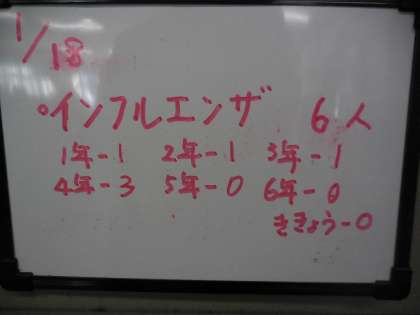 1/18
•インフルエンザ 6人
1年-1 2年-1 3年-1
4年-3 5年-0 6年-0
ききょう-0